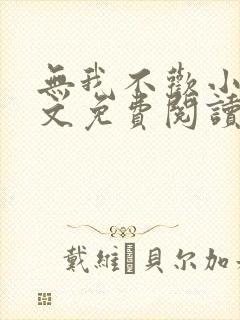 無我不歡小
文免費閱讀
戴維·貝尔加